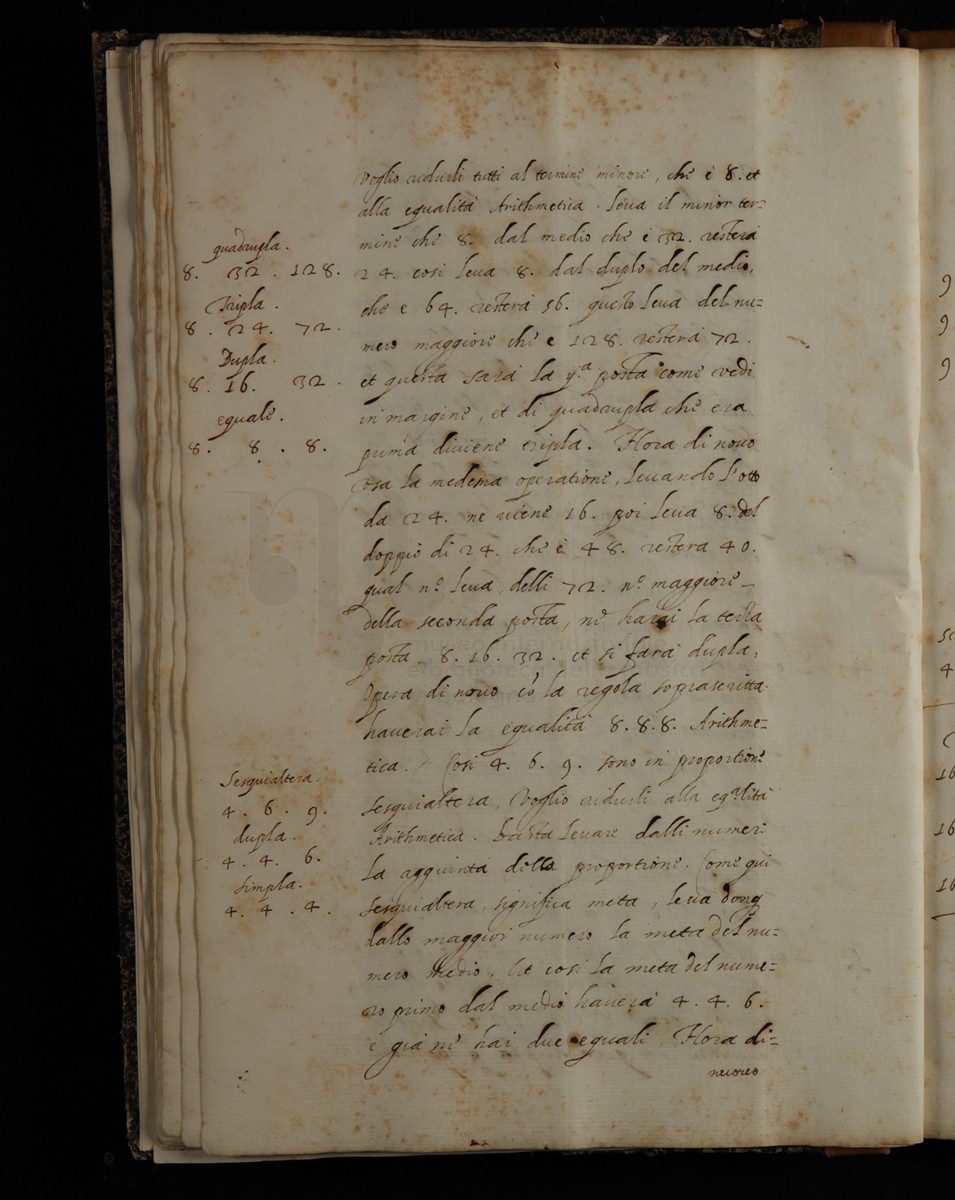 voglio ridurli tutti al termine minore, che è 8. et
alla equalità Arithmetica. leua il minor ter=
mine che 8. dal medio che è 32. resterà
24. cosi leua 8. dal duplo del medio,
che e 64. resterà 56. questo leua del nu=
mero maggiore che e 128. resterà 72.
et questa sarà la 2.ª posta come vedi
in margine, et di quadrupla che era
prima diuiene tripla. Hora di nouo
usa la medema operatione, leuando l'otto
da 24. ne uiene 16. poi leua 8. del
doppio di 24. che è 48. resterà 40.
qual n.º leua delli 72. n.º maggiore
della seconda posta, ne harai la terza
posta. 8. 16. 32. et si farà dupla,
Opera di nouo cõ la regola soprascritta
hauerai la equalità 8. 8. 8. Arithme=
tica. Cosi 4. 6. 9. sono in proportione
sesquialtera, Voglio ridurli alla eq.lità
Arithmetica. basta leuare dalli numeri
la aggiunta della proportione. Come qui
sesquialtera, significa meta, leua donq
dallo maggior numero la meta del nu=
mero medio, Et cosi la meta del nume=
ro primo dal medio hauerai 4. 4. 6.
e già ne hai due eguali. Hora di=
nuouo
quadrupla.
8. 32. 128.
Tripla.
8. 24. 72.
Dupla.
8. 16. 32.
eguale.
8. 8. 8.
Sesquialtera.
4. 6. 9.
dupla.
4. 4. 6.
simpla.
4. 4. 4.